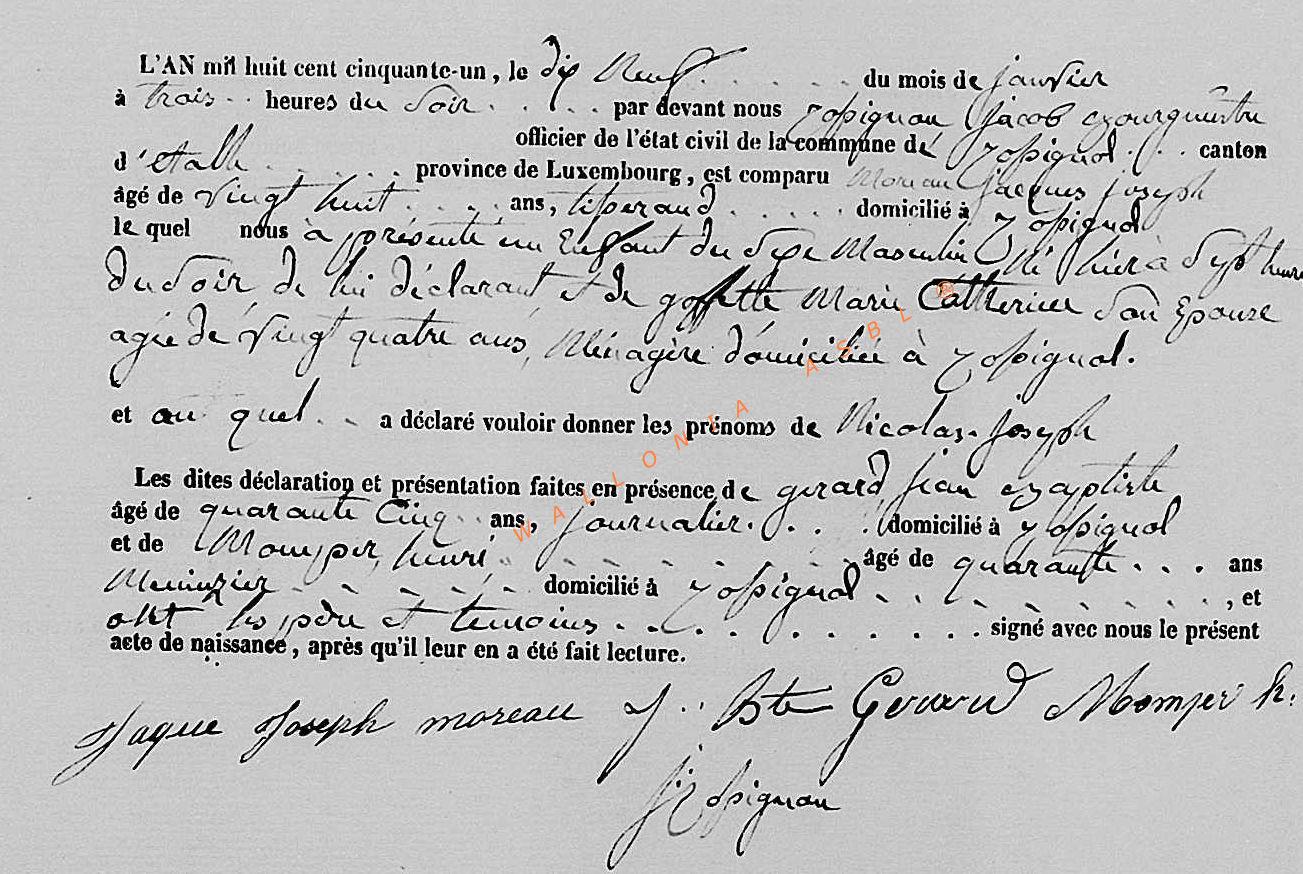 L'AN mil huit cent cinquante-un, le dix Neuf . . . . . du mois de janvier
à trois . . heures du soir . . . . . par devant nous Rossignon Jacob bourgmestre
officier de l'état civil de la commune de Rossignol . . . canton
d'étalle . . . . . . province de Luxembourg, est comparu Moreau Jacques joseph
âgé de vingt huit . . . . ans, tisserand . . . . . domicilié à Rossignol
le quel nous à présenté un Enfant du sexe Masculin Né hier à sept heure
du soir de lui déclarant et de goffette Marie Catherine son Epouze
agée de vingt quatre ans, Ménagère domiciliée à Rossignol.
et au quel . . a déclaré vouloir donner les prénoms de Nicolas-joseph
Les dites déclaration et présentation faites en présence de gerard, jean Baptiste
âgé de quarante Cinq . . ans, journalier . . . . domicilié à Rossignol
et de Momper, henri . . . . . . . . . âgé de quarante . . . ans
Menuizier . . . . . . domicilié à Rossignol . . . . . . . . . , et
ont les père et temoins . . . . . . . . . . signé avec nous le présent
acte de naissance, après qu'il leur en a été fait lecture.
Jaque Joseph moreau J . . Bte Gerard Momper h.
J Rossignon
WALLONIA ASBL ®